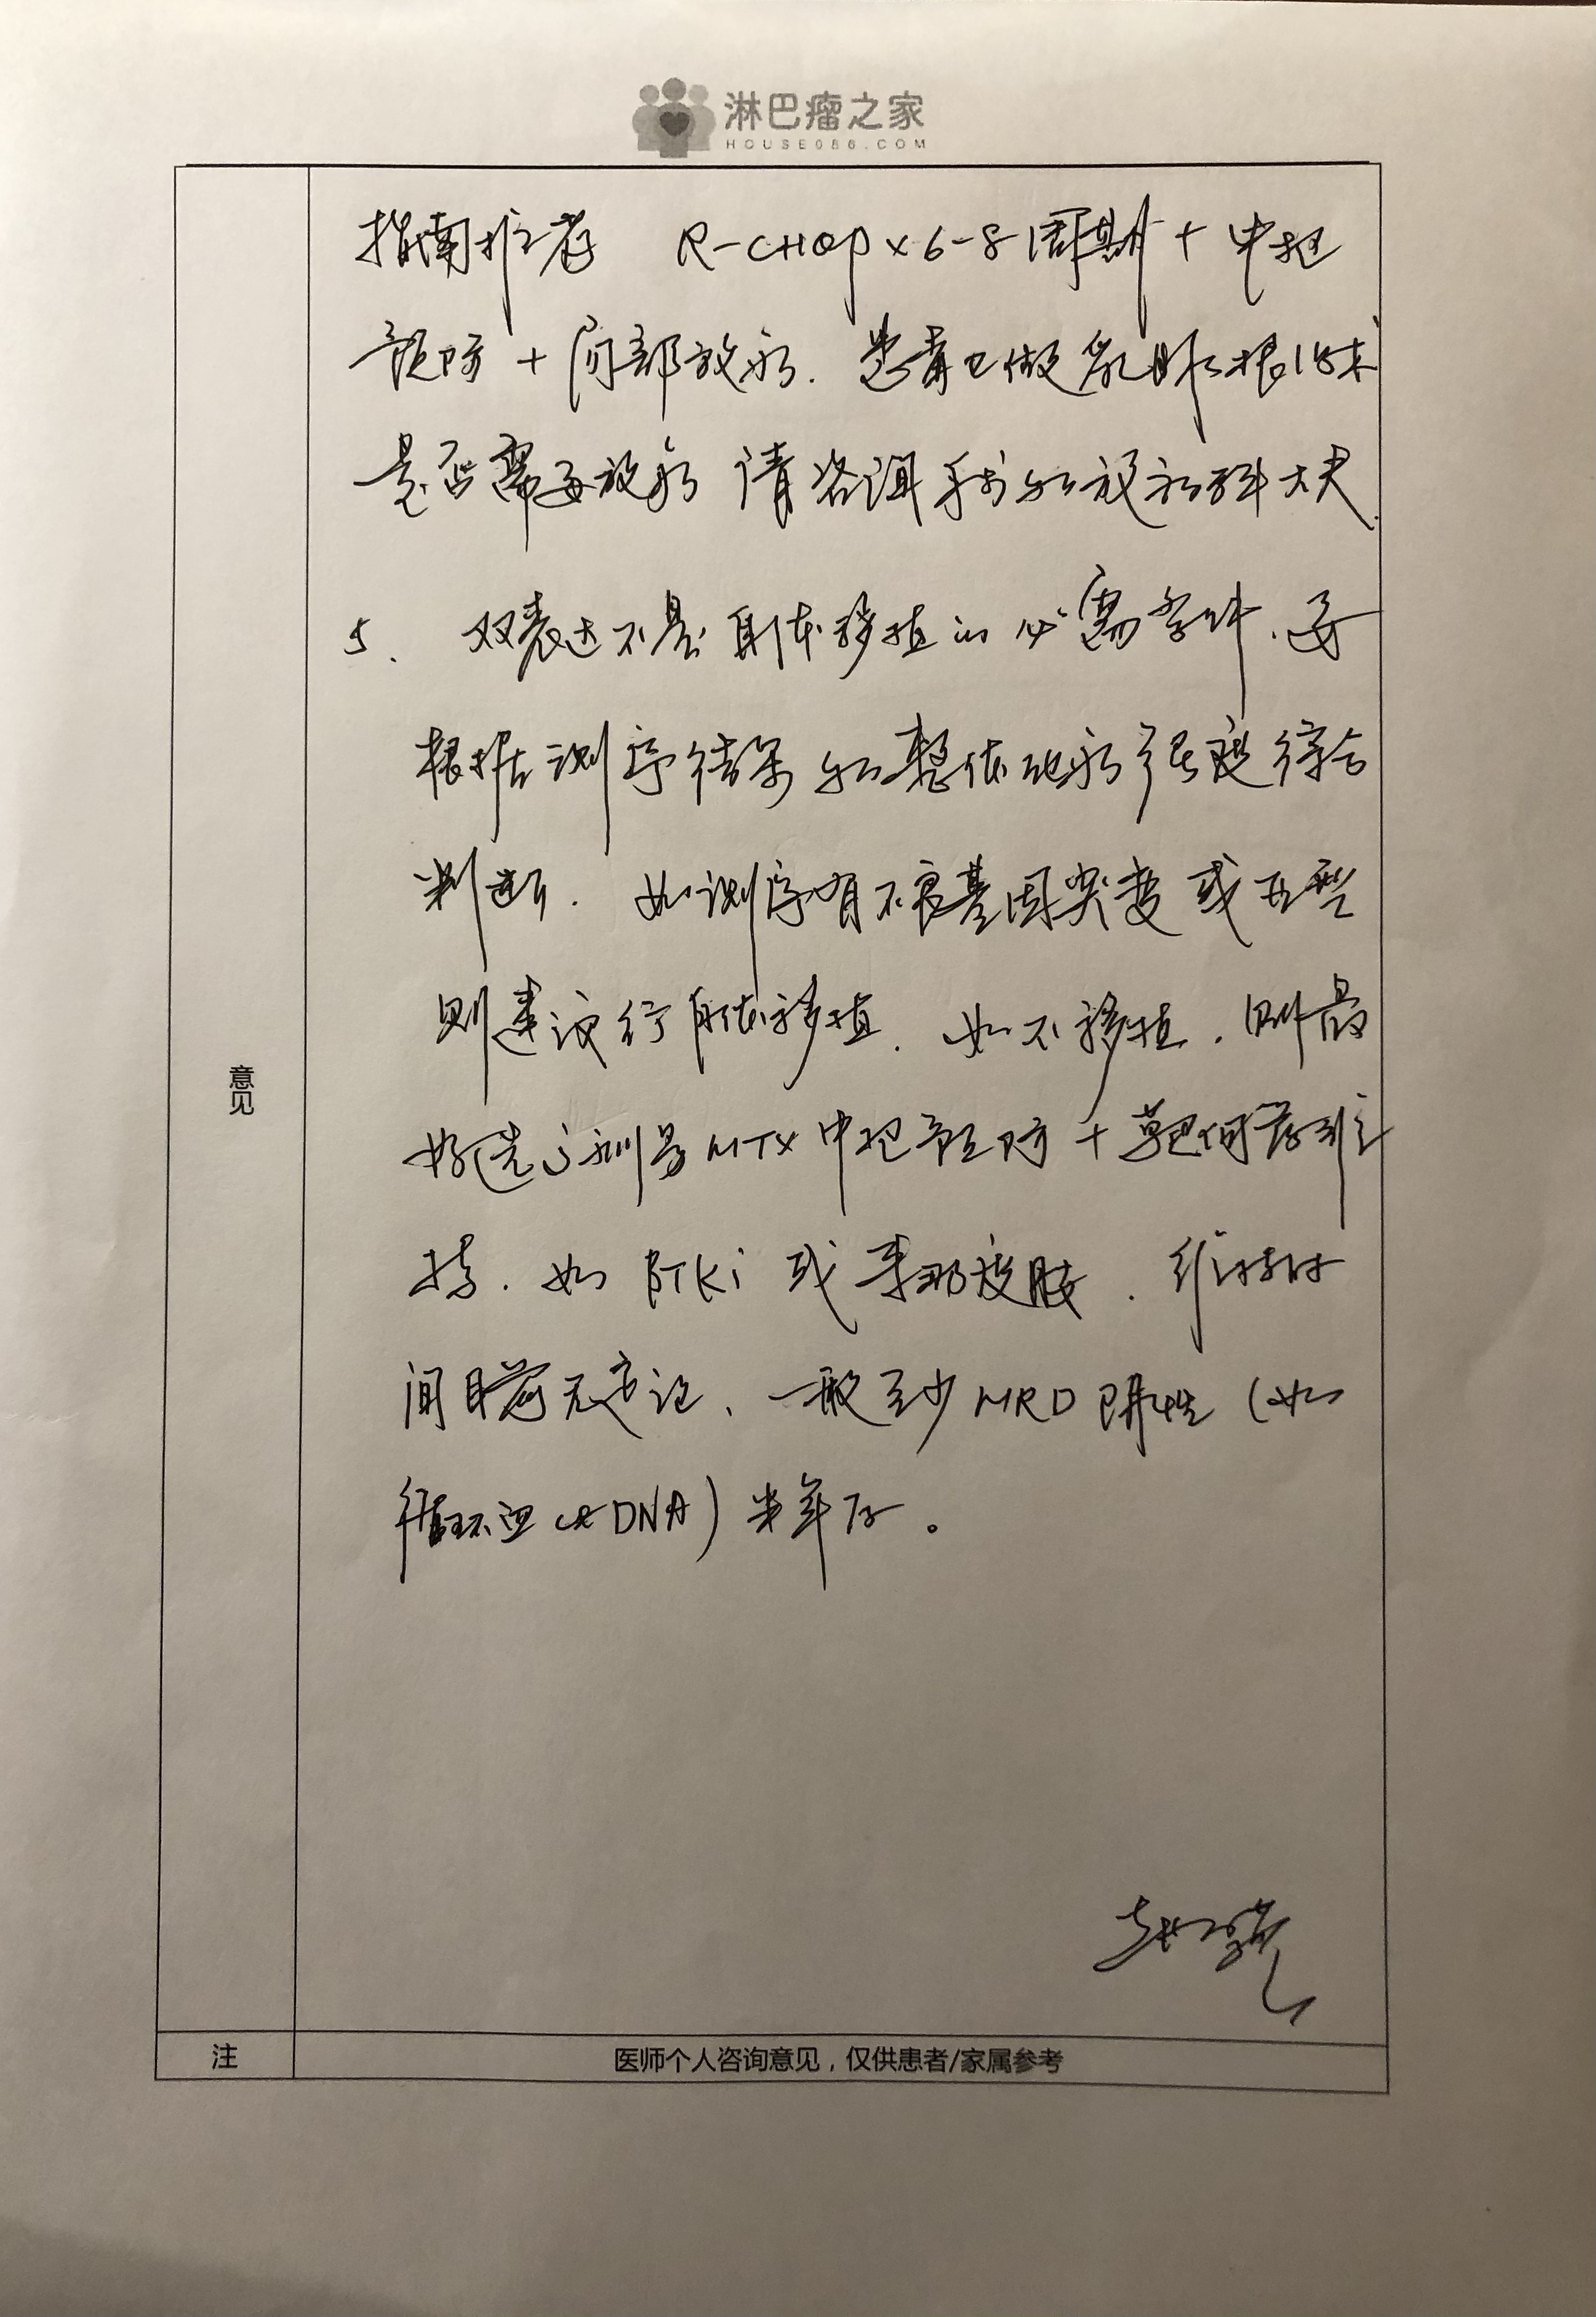 淋巴瘤之家
HOUSE086.COM
指南推荐 R-CHOP×6-8周期+中枢
预防+局部放疗. 患者已做乳腺根治术
是否需要放疗 请咨询手术和放疗科大夫.
5、 双表达不是自体移植的必需条件、要
根据测序结果和整体化疗强度综合
判断. 如测序有不良基因突变或
则建议行自体移植. 如不移植. 则最
好选 剂量MTX中枢预防+靶向药维
持. 如BTKi或来那度胺. 维持时
间目前无定论、一般至少MRD阴性(如
循环血ctDNA)半年后。
意见
注
医师个人咨询意见，仅供患者/家属参考